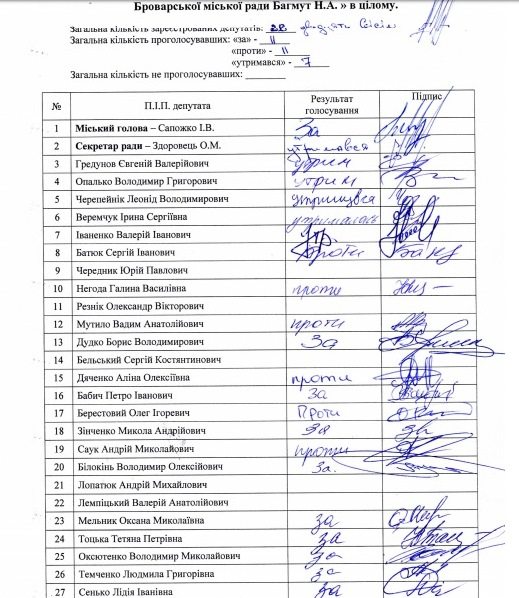 Броварської міської ради Багмут Н.А. » в цілому.
Загальна кількість зареєстрованих депутатів: 28 двадцять вісім
Загальна кількість проголосувавших: «за» - 11
«проти» - 11
«утримався» - 7
Загальна кількість не проголосувавших:
№ П.І.П. депутата Результат голосування Підпис
1 Міський голова – Сапожко І.В. За
2 Секретар ради – Здоровець О.М. утримався
3 Гредунов Євгеній Валерійович утрим
4 Опалько Володимир Григорович утрим
5 Черепейнік Леонід Володимирович утримався
6 Веремчук Ірина Сергіївна утрималась
7 Іваненко Валерій Іванович
8 Батюк Сергій Іванович проти
9 Чередник Юрій Павлович
10 Негода Галина Василівна проти
11 Резнік Олександр Вікторович
12 Мутило Вадим Анатолійович проти
13 Дудко Борис Володимирович За
14 Бельський Сергій Костянтинович
15 Дяченко Аліна Олексіївна проти
16 Бабич Петро Іванович За
17 Берестовий Олег Ігоревич Проти
18 Зінченко Микола Андрійович За
19 Саук Андрій Миколайович проти
20 Білокінь Володимир Олексійович За.
21 Лопатюк Андрій Михайлович
22 Лемпіцький Валерій Анатолійович
23 Мельник Оксана Миколаївна за
24 Тоцька Тетяна Петрівна за
25 Оксютенко Володимир Миколайович за
26 Темченко Людмила Григорівна за
27 Сенько Лідія Іванівна за